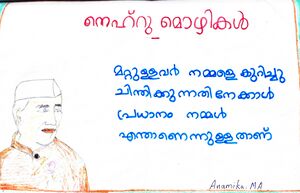 നെഹ്റു_മൊഴികൾ
മറ്റുള്ളവർ നമ്മളെ കുറിച്ചു
ചിന്തിക്കുന്നതിനേക്കാൾ
പ്രധാനം നമ്മൾ
എന്താണെന്നുള്ളതാണ്
Anamika. M.A